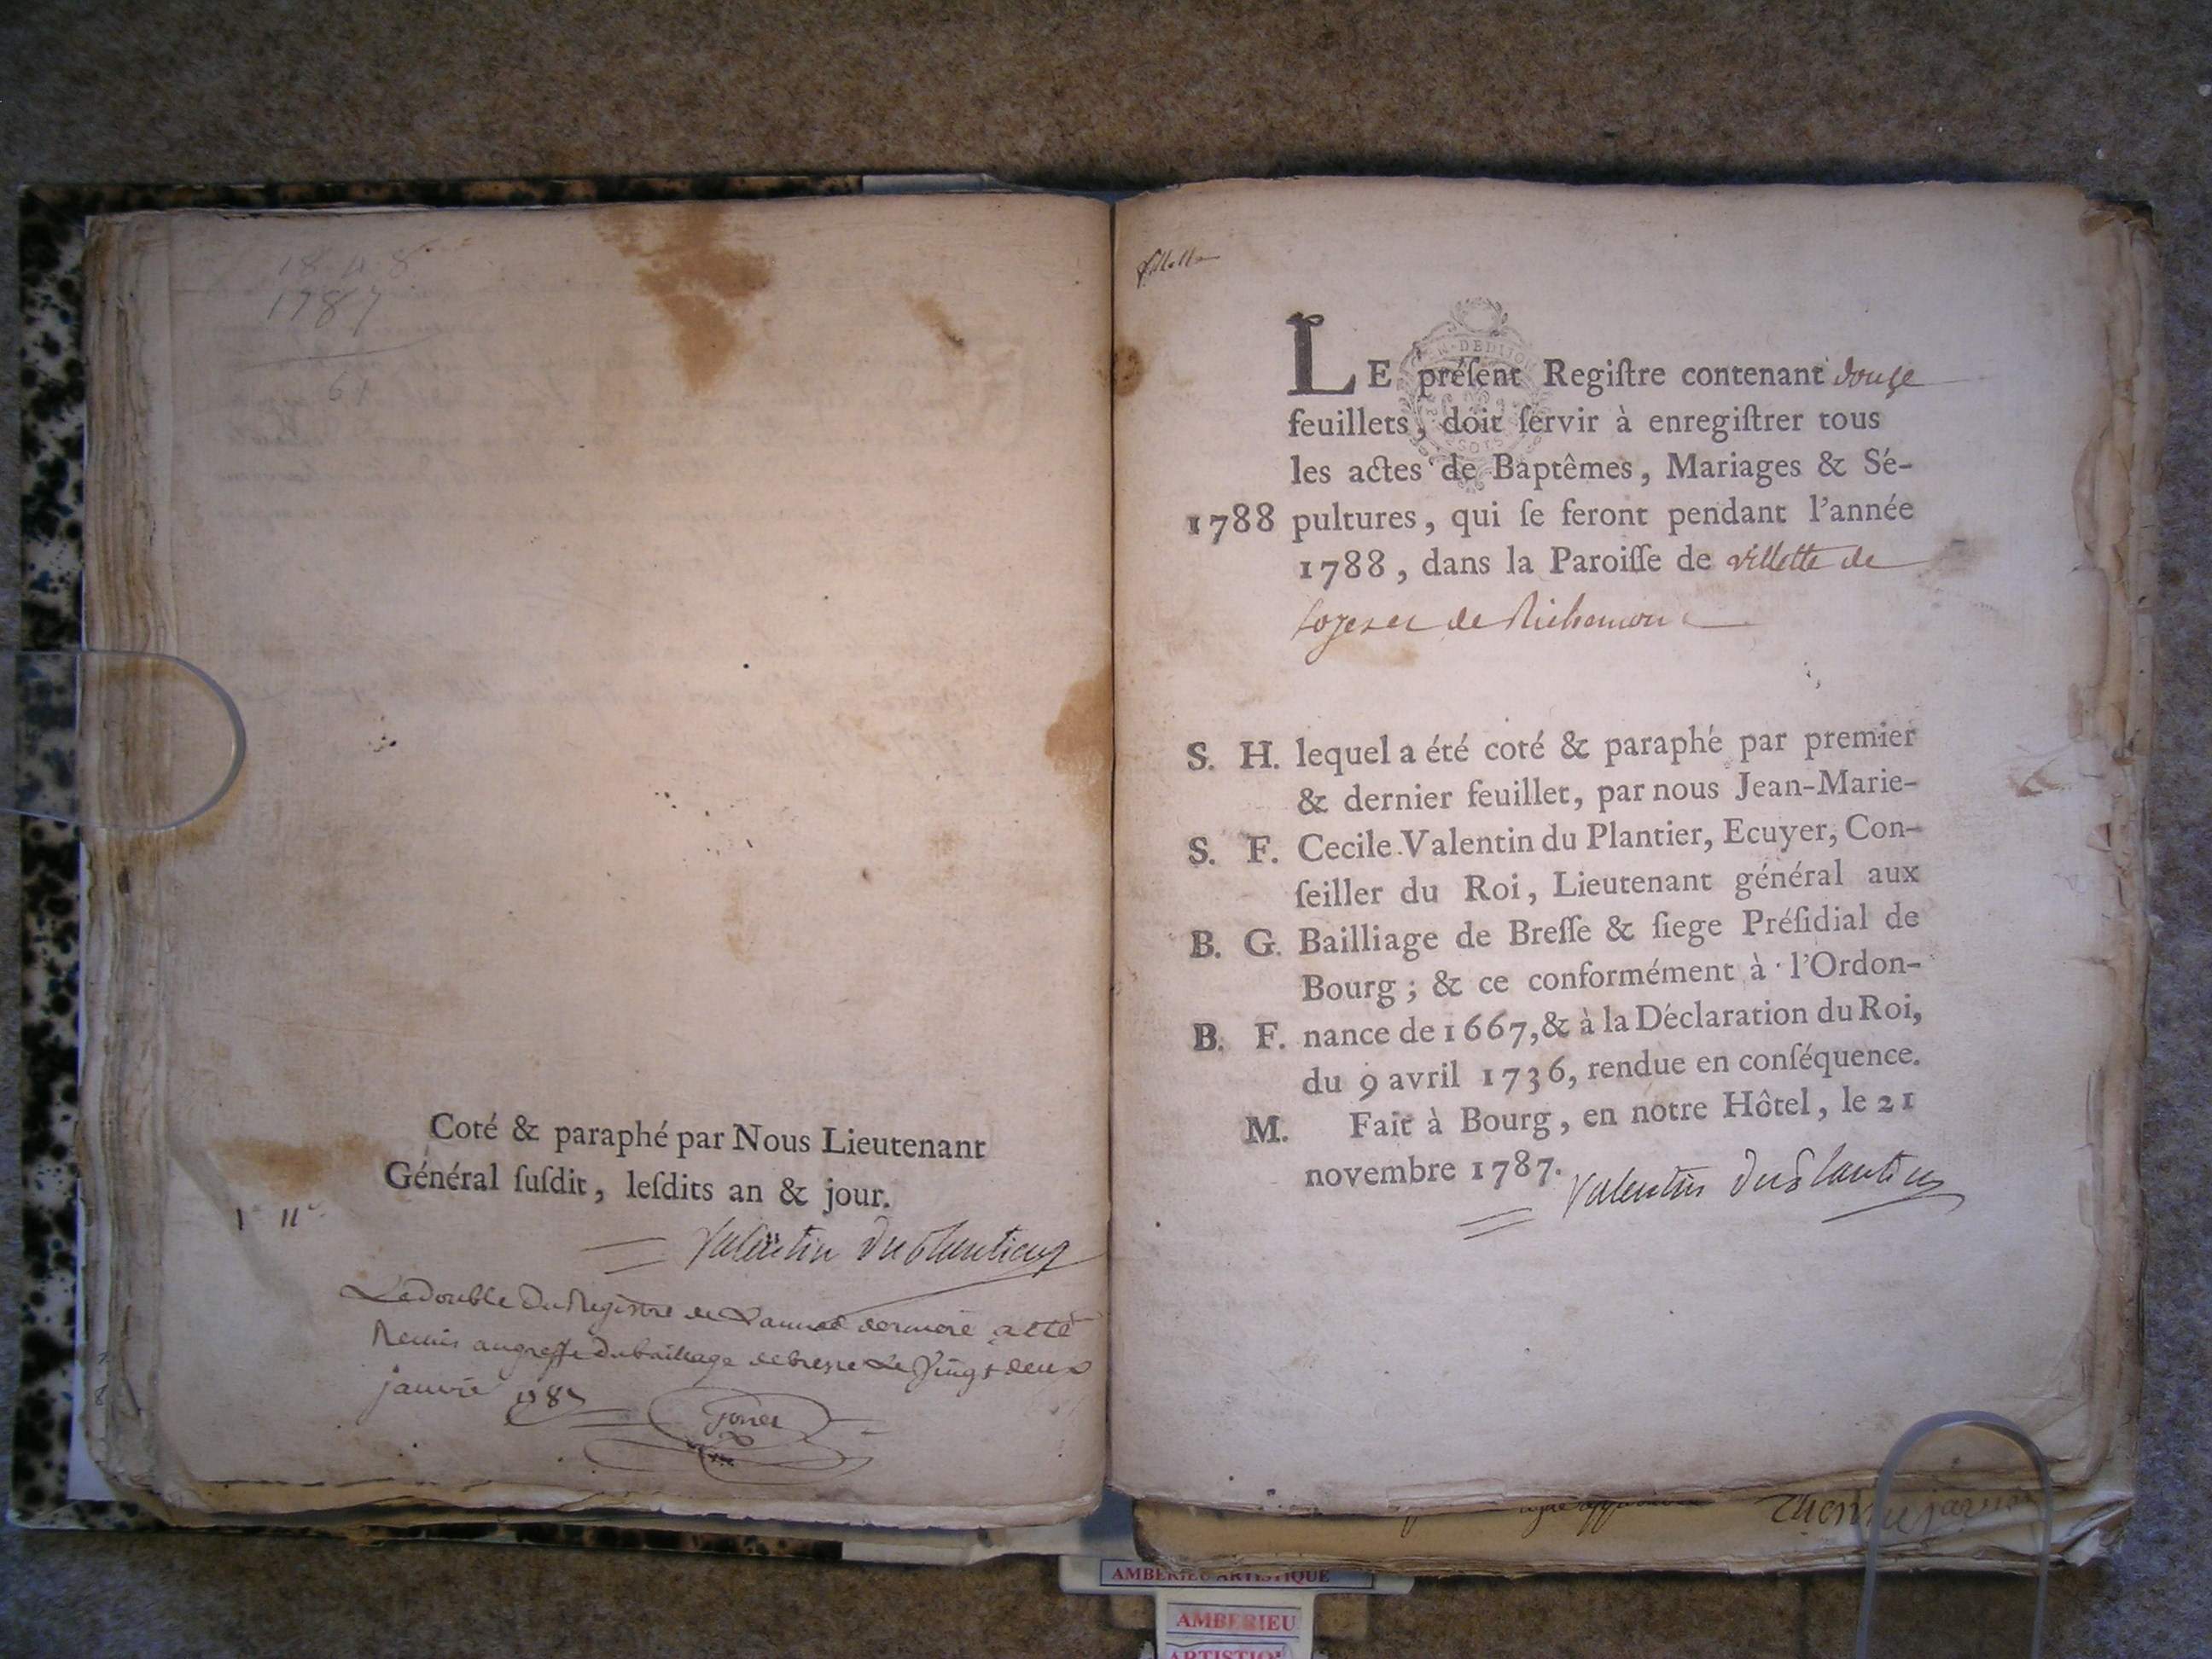 1787
61
Coté & paraphé par Nous Lieutenant
Général ſuſdit, leſdits an & jour.
Valentin duPlantier
Le double Du Registre de L'année derniere a eté
Remis au greffe Du bailliage de bresse Le Vingt deux
janvié 1787
LE préſent Regiſtre contenant douze
feuillets, doit ſervir à enregiſtrer tous
les actes de Baptêmes, Mariages & Sé-
1788 pultures, qui ſe feront pendant l'année
1788, dans la Paroiſſe de villette de
Loyes et de Richemont
S. H. lequel a été coté & paraphé par premier
& dernier feuillet, par nous Jean-Marie-
S. F. Cecile Valentin du Plantier, Ecuyer, Con-
ſeiller du Roi, Lieutenant général aux
B. G. Bailliage de Breſſe & ſiege Préſidial de
Bourg ; & ce conformément à l'Ordon-
B. F. nance de 1667, & à la Déclaration du Roi,
du 9 avril 1736, rendue en conſéquence.
M. Fait à Bourg, en notre Hôtel, le 21
novembre 1787.
Valentin duPlantier
AMBERIEU ARTISTIQUE
AMBERIEU